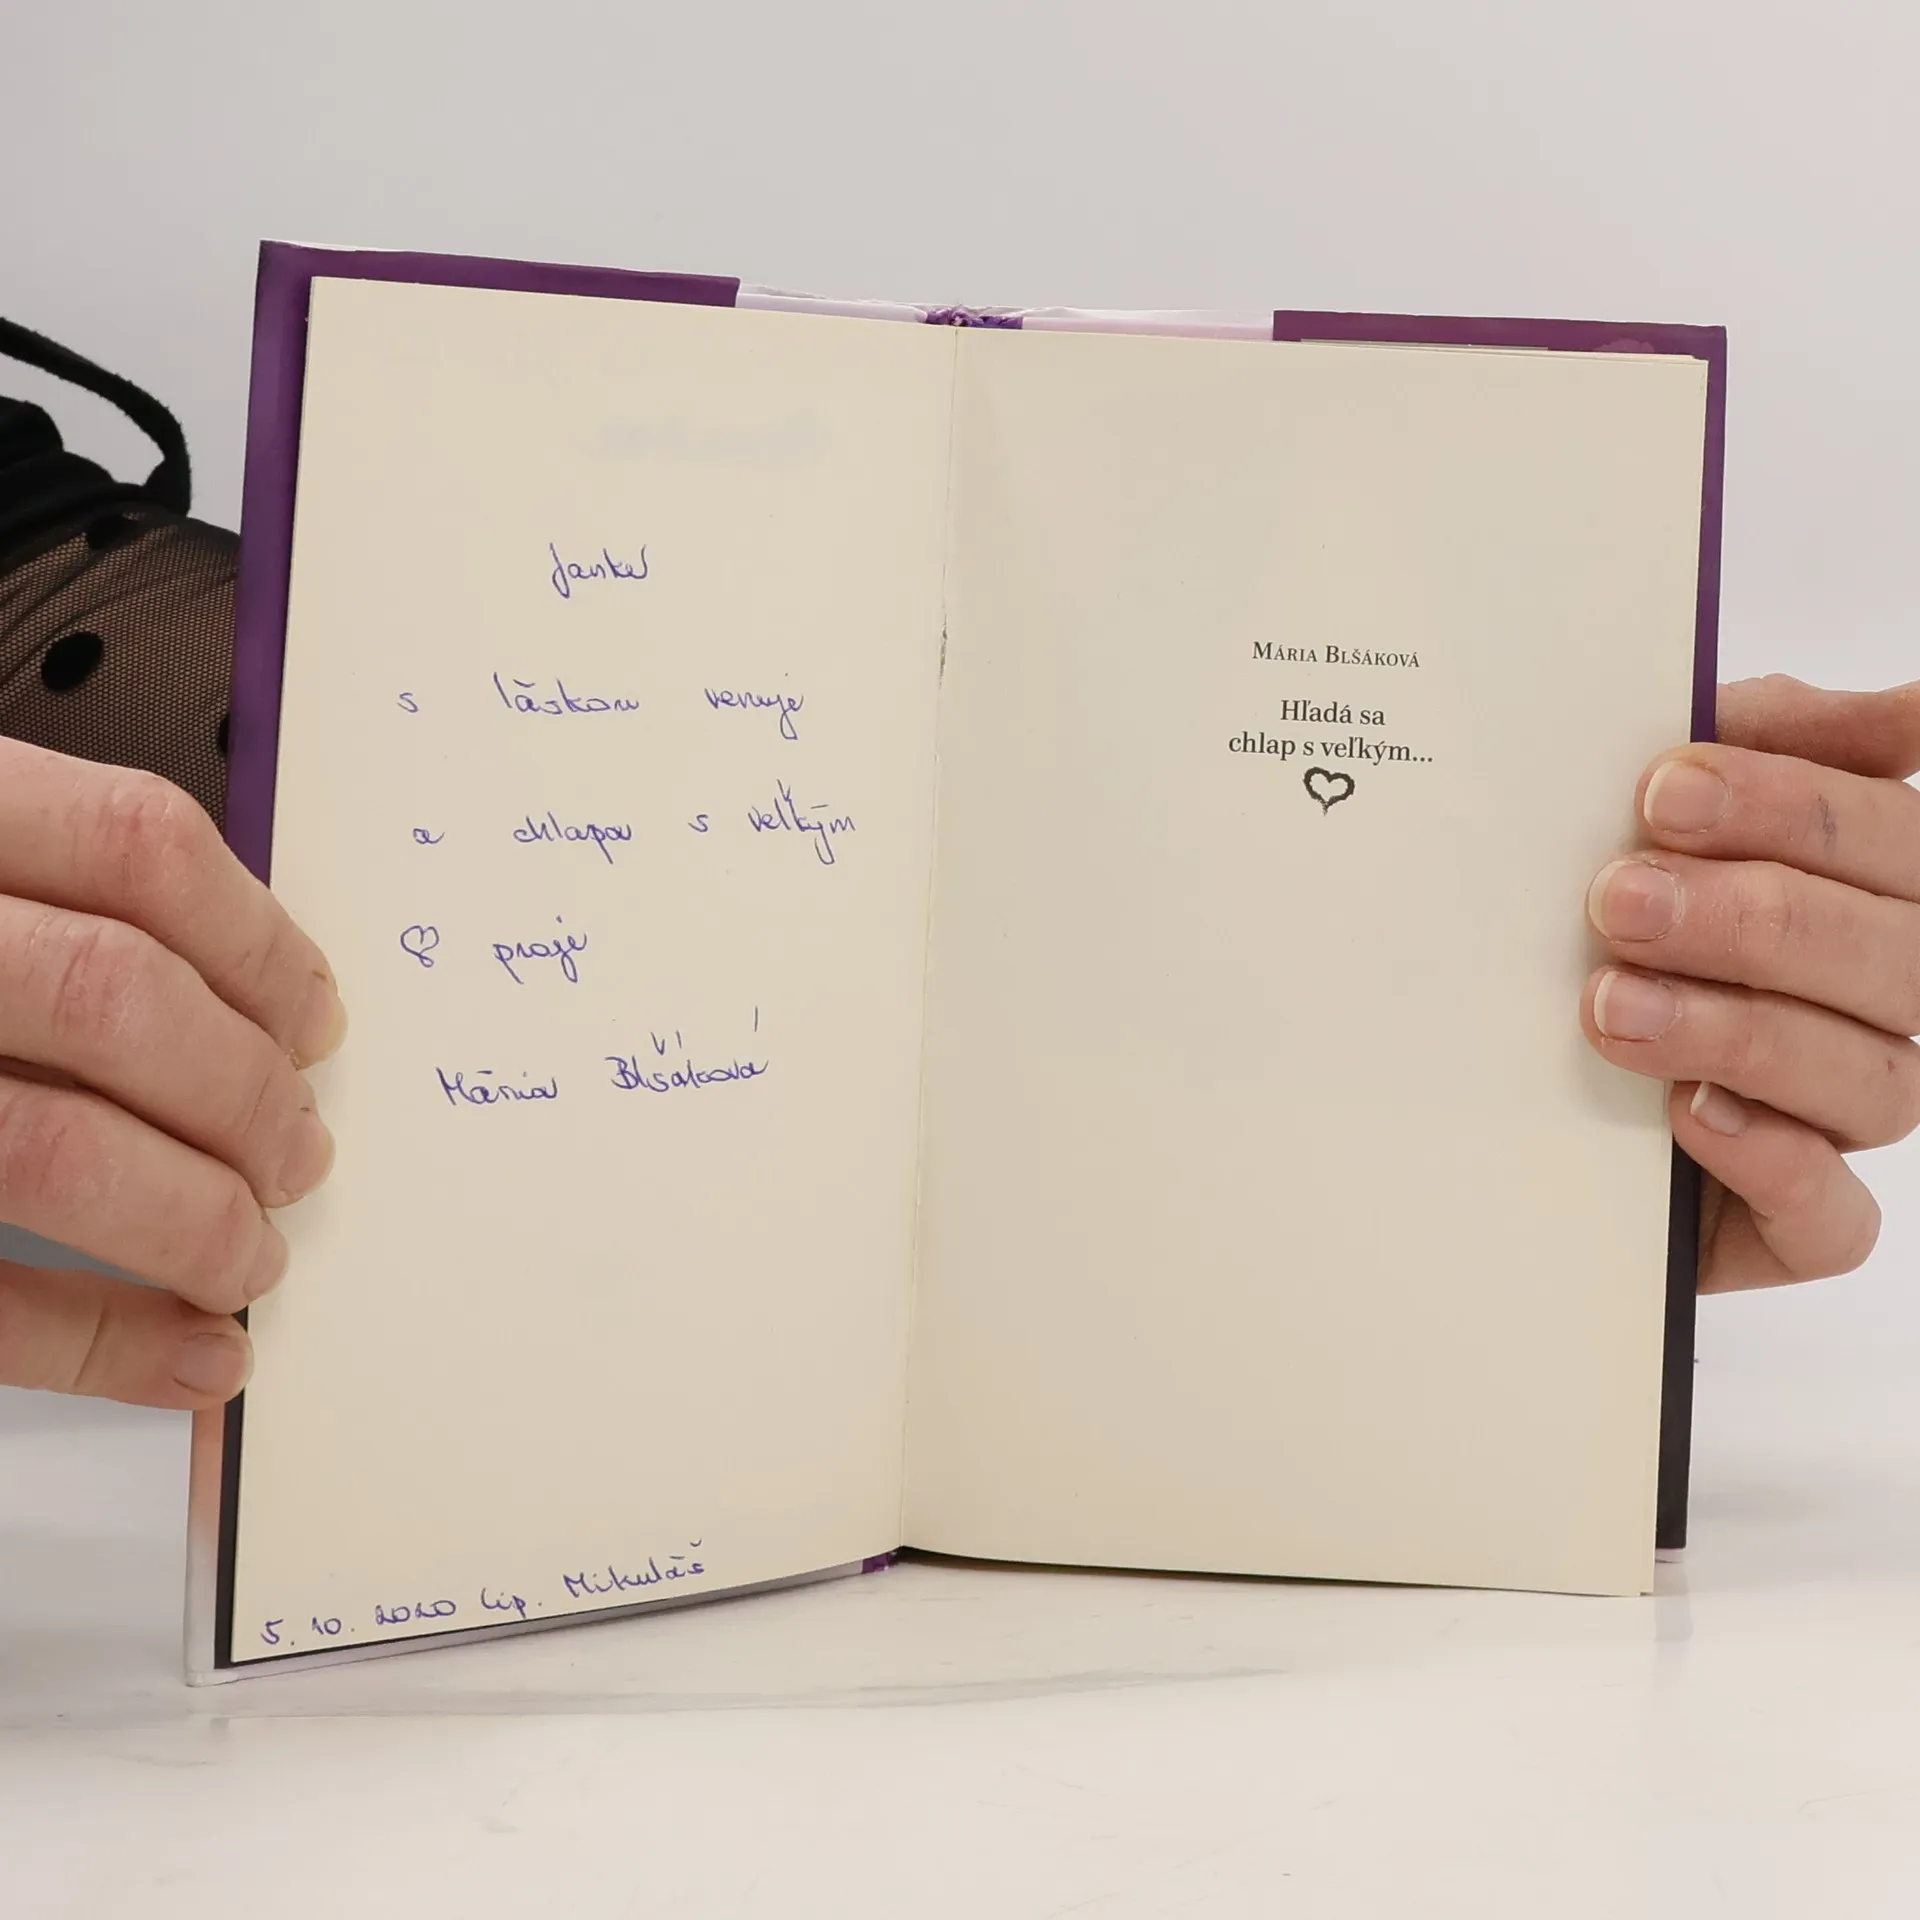 Janke
s láskou venuje
a chlapa s veľkým
♡ praje
Mária Blšáková
5.10.2020 Lip. Mikuláš
MÁRIA BLŠÁKOVÁ
Hľadá sa
chlap s veľkým...